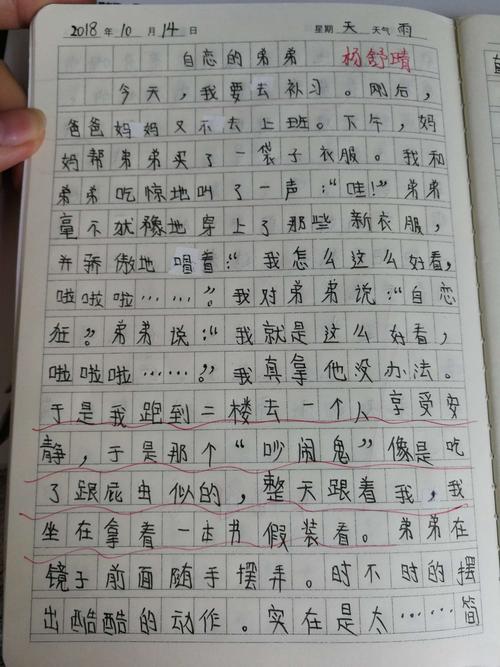 2018 年 10 月 14 日 星期 天 天气 雨
自恋的弟弟 杨舒晴
今天，我要去补习。刚后，
爸爸妈妈又不去上班。下午，妈
妈帮弟弟买了一袋子衣服。我和
弟弟吃惊地叫了一声：“哇！”弟弟
毫不犹豫地穿上了那些新衣服，
并骄傲地唱着：“我怎么这么好看，
啦啦啦……？”我对弟弟说：“自恋
狂？弟弟说：“我就是这么好看，
啦啦啦……？”我真拿他没办法。
于是我跑到二楼去一个人享受安
静，于是那个“吵闹鬼”像是吃
了跟屁虫似的，整天跟着我，我
坐在拿着一本书假装看。弟弟在
镜子前面随手摆弄。时不时的摆
出酷酷的动作。实在是太……简